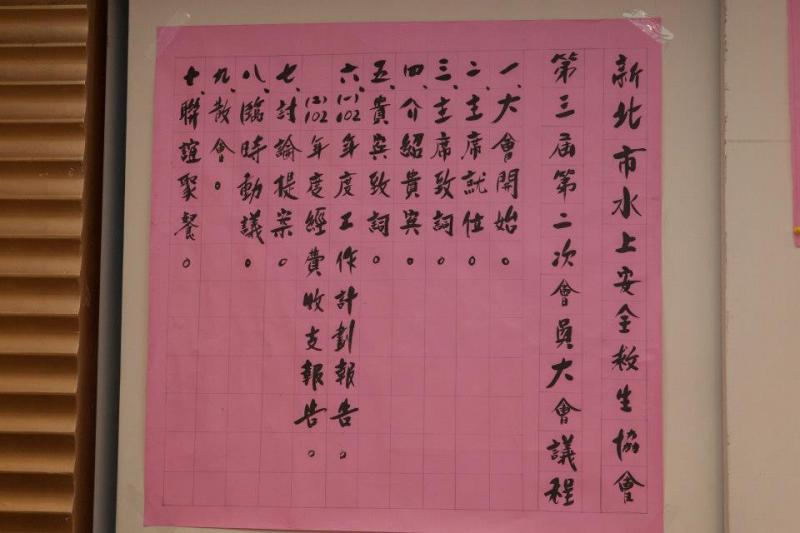 新北市水上安全救生協會
第三屆第二次會員大會議程
一、大會開始。
二、主席就位。
三、主席致詞。
四、介紹貴賓。
五、貴賓致詞。
六、(一)102年度工作計劃報告。
(2)102年度經費收支報告。
七、討論提案。
八、臨時動議。
九、散會。
十、聯誼聚餐。